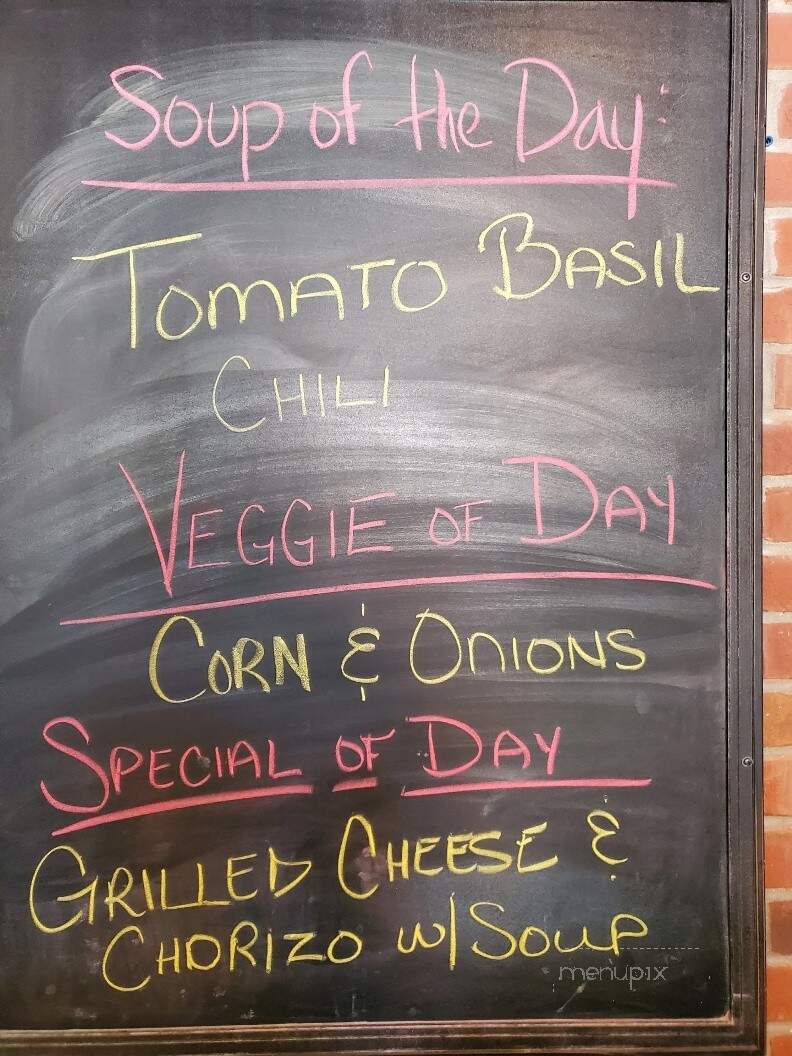 Soup of the Day:
TOMATO BASIL
CHILI
VEGGIE OF DAY
CORN & ONIONS
SPECIAL OF DAY
GRILLED CHEESE &
CHORIZO W/ SOUP
menupix